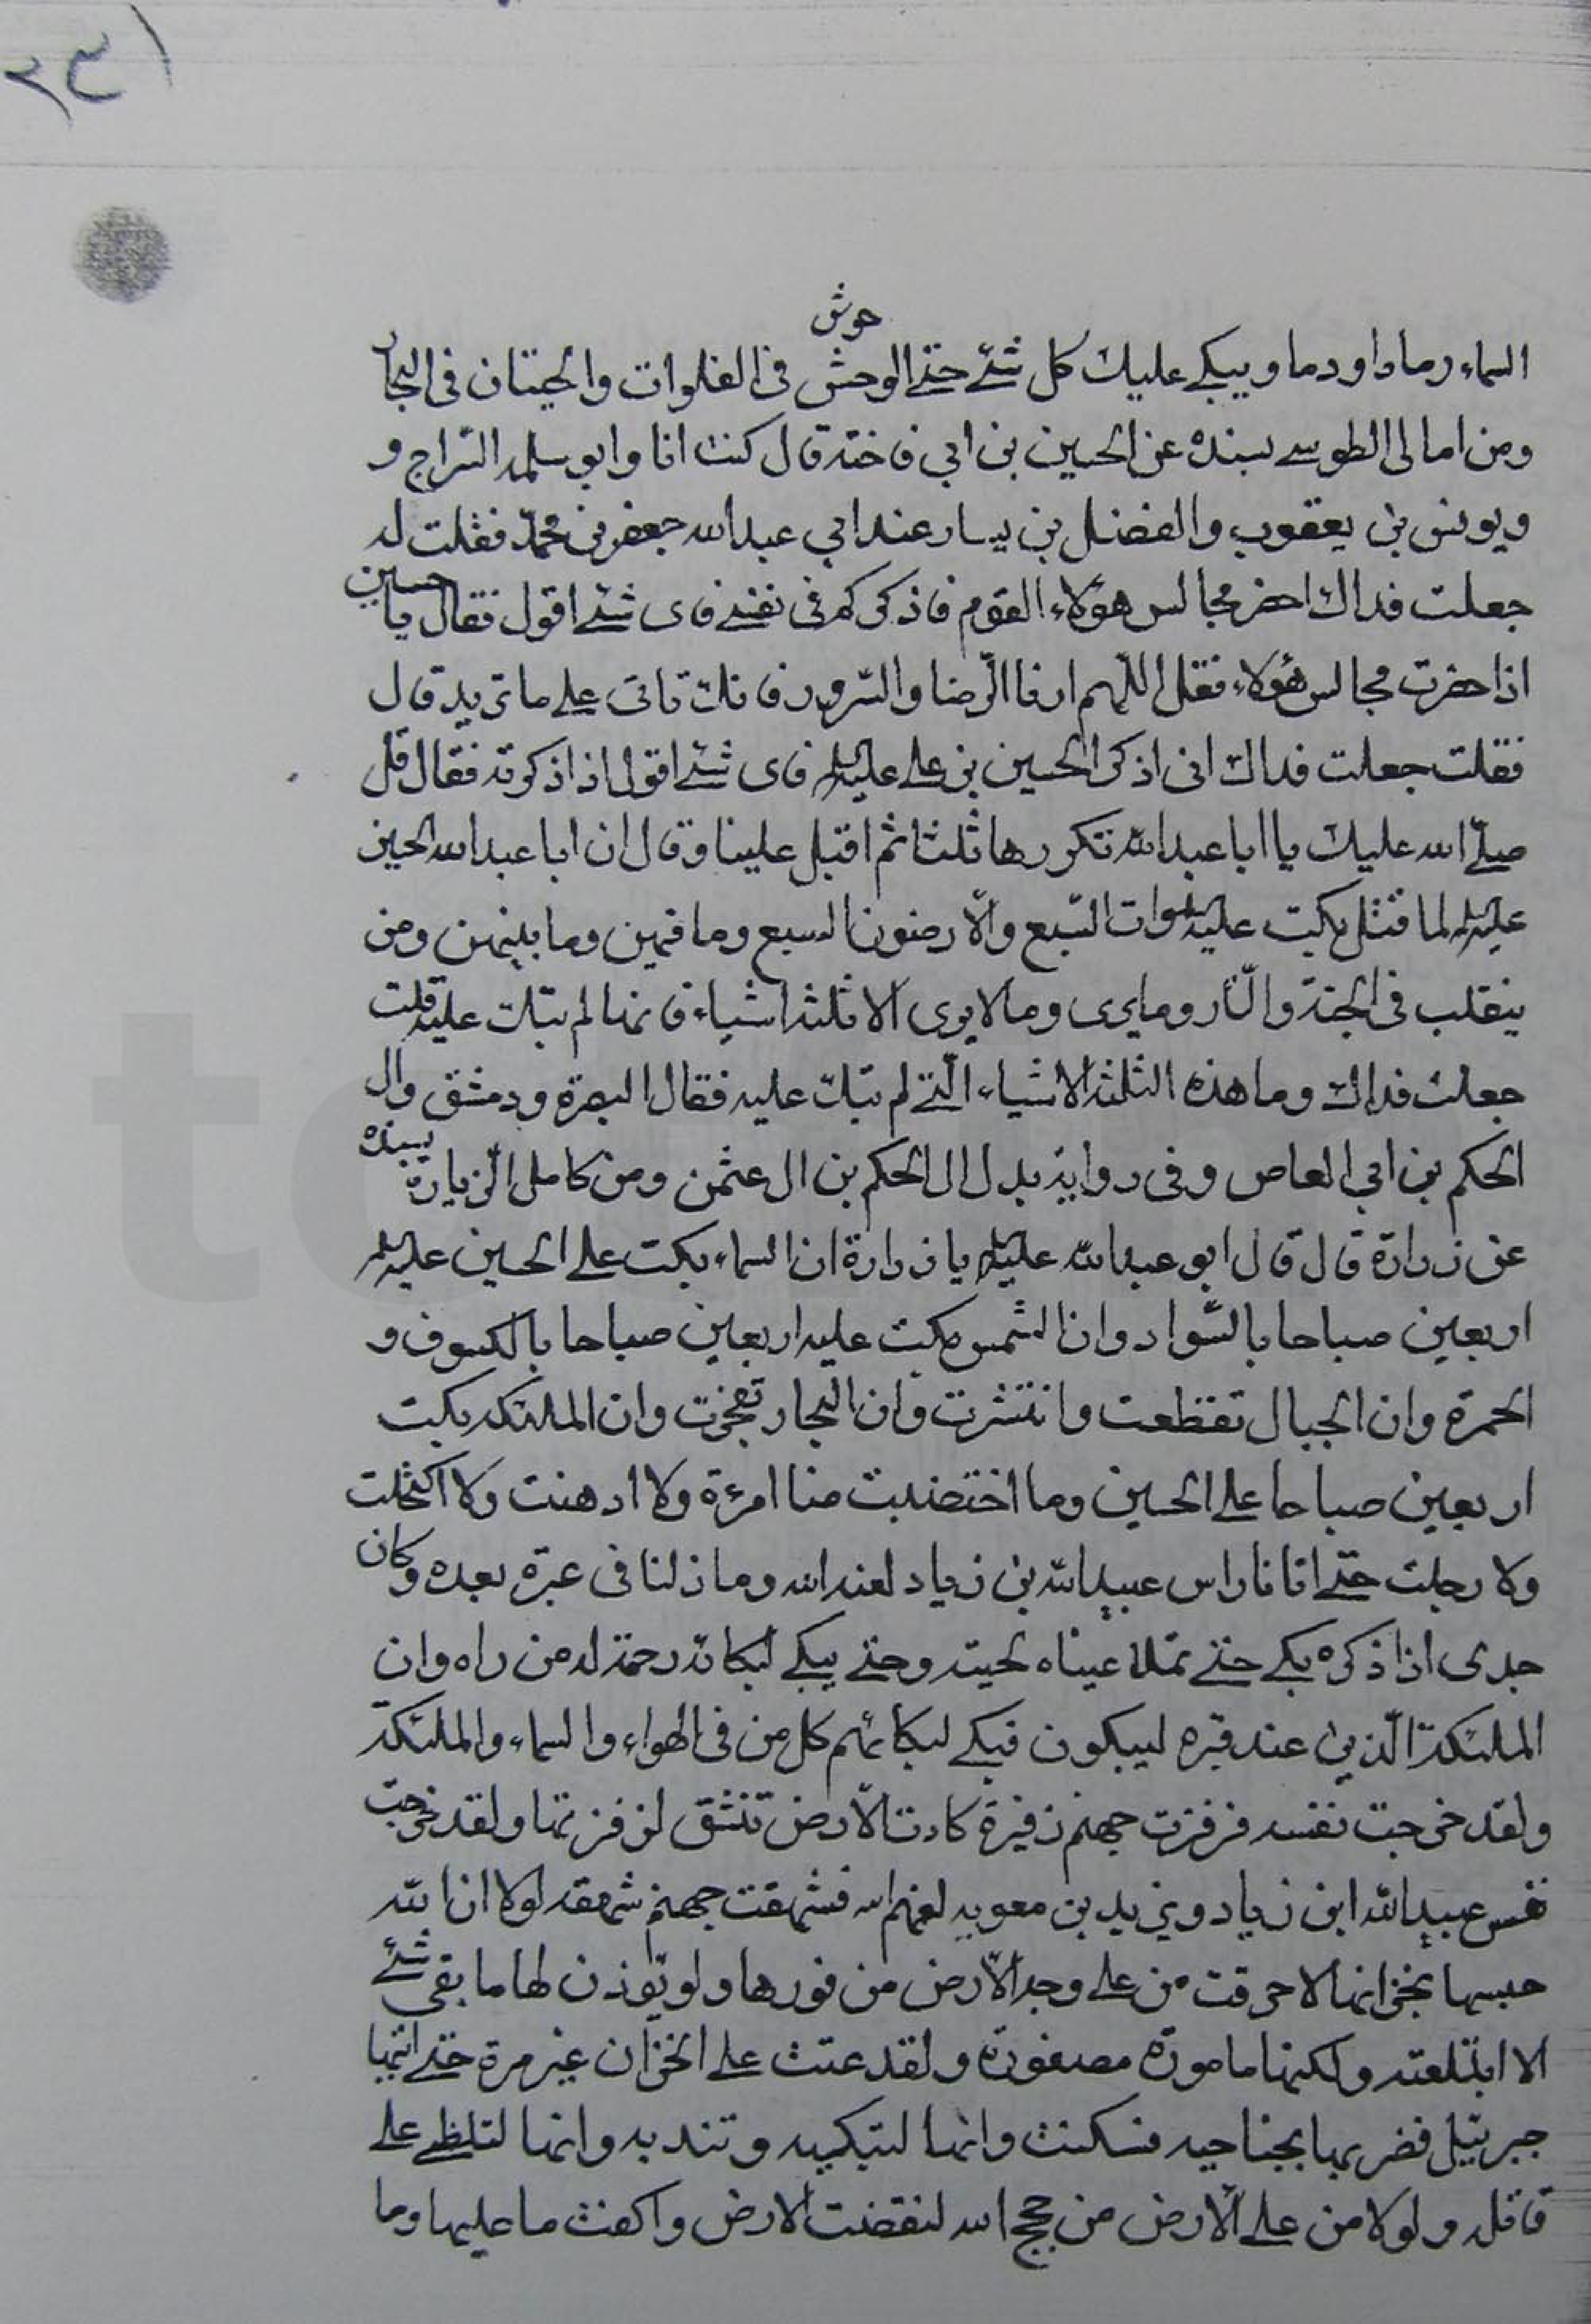 ١٣٢
حوش
السماء رمادا ودما ويبكي عليك كل شئ حتى الوحش فى الفلوات والحيتان فى البحار
ومن امالى الطوسي بسنده عن الحسين بن ابي فاختة قال كنت انا وابو سلمه السّراج و
ويونس بن يعقوب والفضل بن يسار عند ابي عبدالله جعفر بن محمّد فقلت له
جعلت فداك احضر مجالس هؤلاء القوم فاذكركم فى نفسى فاى شئ اقول فقال يا حسين
اذا حضرت مجالس هؤلاء فقل اللّهم ارنا الرّضا والسّرور فانك تاتى على ما تريد قال
فقلت جعلت فداك انى اذكر الحسين بن على عليه السلم فاى شئ اقول اذا ذكرته فقال قل
صلّى الله عليك يا ابا عبدالله تكررها ثلثا ثم اقبل علينا وقال ان ابا عبدالله الحسين
عليه السلم لما قتل بكت عليه السموات السّبع والارضون السبع وما فيهن وما بينهن ومن
ينقلب فى الجنة والنّار وما يرى وما لا يرى الا ثلثة اشياء فانها لم تبك عليه قلت
جعلت فداك وما هذه الثلثة الاشياء الّتي لم تبك عليه فقال البصرة ودمشق وال
الحكم بن ابي العاص وفى رواية بدل ال الحكم بن ال عثمن ومن كامل الزيارة بسنده
عن زرارة قال قال ابو عبدالله عليه السلم يا زرارة ان السماء بكت على الحسين عليه السلم
اربعين صباحا بالسّواد وان الشمس بكت عليه اربعين صباحا بالكسوف و
الحمرة وان الجبال تقطعت وانتثرت وان البحار تفجرت وان الملئكه بكت
اربعين صباحا على الحسين وما اختضبت منا امرءة ولا ادهنت ولا اكتحلت
ولا رجلت حتى اتانا راس عبيدالله بن زياد لعنه الله وما زلنا فى عبرة بعده وكان
جدى اذا ذكره بكى حتى تملا عيناه لحيته وحتى يبكي لبكائه رحمة له من راه وان
الملئكة الّذين عند قبره ليبكون فيبكي لبكائهم كل من فى الهواء والسماء والملئكة
ولقد خرجت نفسه فزفرت جهنم زفيرة كادت الارض تنشق لزفرتها ولقد خرجت
نفس عبيدالله ابن زياد ويزيد بن معويه لعنهم الله فشهقت جهنم شهقه لولا ان الله
حبسها بخزانها لاحرقت من على وجه الارض من فورها ولو يؤذن لها ما بقى شئ
الا ابتلعته ولكنها مامورة مصفودة ولقد عتت على الخزان غير مرة حتى اتيها
جبرئيل فضربها بجناحيه فسكنت وانها لتبكيه وتندبه وانها لتلظى على
قاتله ولولا من على الارض من حجج الله لنقضت الارض واكفئت ما عليها وما